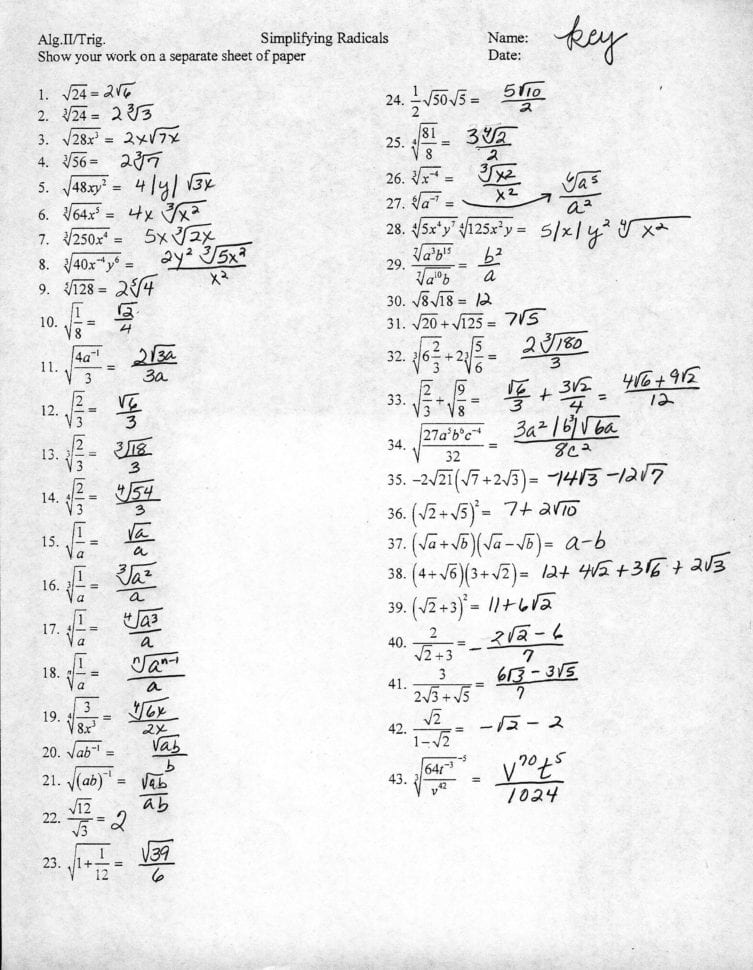 Alg.II/Trig. Simplifying Radicals Name: key
Show your work on a separate sheet of paper Date:
1. √24 = 2√6
2. ∛24 = 2∛3
3. √28x³ = 2x√7x
4. ∛56 = 2∛7
5. √48xy² = 4|y|√3x
6. ∛64x⁵ = 4x∛x²
7. ∛250x⁴ = 5x∛2x
8. ∛40x⁻⁴y⁶ = 2y²∛5x² / x²
9. ⁵√128 = 2⁵√4
10. √(1/8) = √2 / 4
11. √(4a⁻¹/3) = 2√3a / 3a
12. √(2/3) = √6 / 3
13. ∛(2/3) = ∛18 / 3
14. ⁴√(2/3) = ⁴√54 / 3
15. √(1/a) = √a / a
16. ∛(1/a) = ∛a² / a
17. ⁴√(1/a) = ⁴√a³ / a
18. ⁿ√(1/a) = ⁿ√aⁿ⁻¹ / a
19. ⁴√(3/8x³) = ⁴√6x / 2x
20. √ab⁻¹ = √ab / b
21. √(ab)⁻¹ = √ab / ab
22. √12 / √3 = 2
23. √(1+1/12) = √39 / 6
24. 1/2 √50√5 = 5√10 / 2
25. ⁴√(81/8) = 3⁴√2 / 2
26. ∛x⁻⁴ = ∛x² / x²
27. ⁶√a⁻⁷ = ⁶√a⁵ / a²
28. ⁴√5x⁴y⁷ ⁴√125x²y = 5|x|y² ⁴√x²
29. ⁷√a³b¹⁵ / ⁷√a¹⁰b = b² / a
30. √8√18 = 12
31. √20 + √125 = 7√5
32. ∛(6 2/3) + 2∛(5/6) = 2∛180 / 3
33. √(2/3) + √(9/8) = √6 / 3 + 3√2 / 4 = 4√6 + 9√2 / 12
34. √(27a⁵b⁶c⁻⁴ / 32) = 3a²|b³|√6a / 8c²
35. −2√21(√7 + 2√3) = −14√3 − 12√7
36. (√2 + √5)² = 7 + 2√10
37. (√a + √b)(√a − √b) = a − b
38. (4 + √6)(3 + √2) = 12 + 4√2 + 3√6 + 2√3
39. (√2 + 3)² = 11 + 6√2
40. 2 / √2 + 3 = − 2√2 − 6 / 7
41. 3 / 2√3 + √5 = 6√3 − 3√5 / 7
42. √2 / 1 − √2 = −√2 − 2
43. ∛(64t⁻³ / v⁴²)⁻⁵ = v⁷⁰t⁵ / 1024